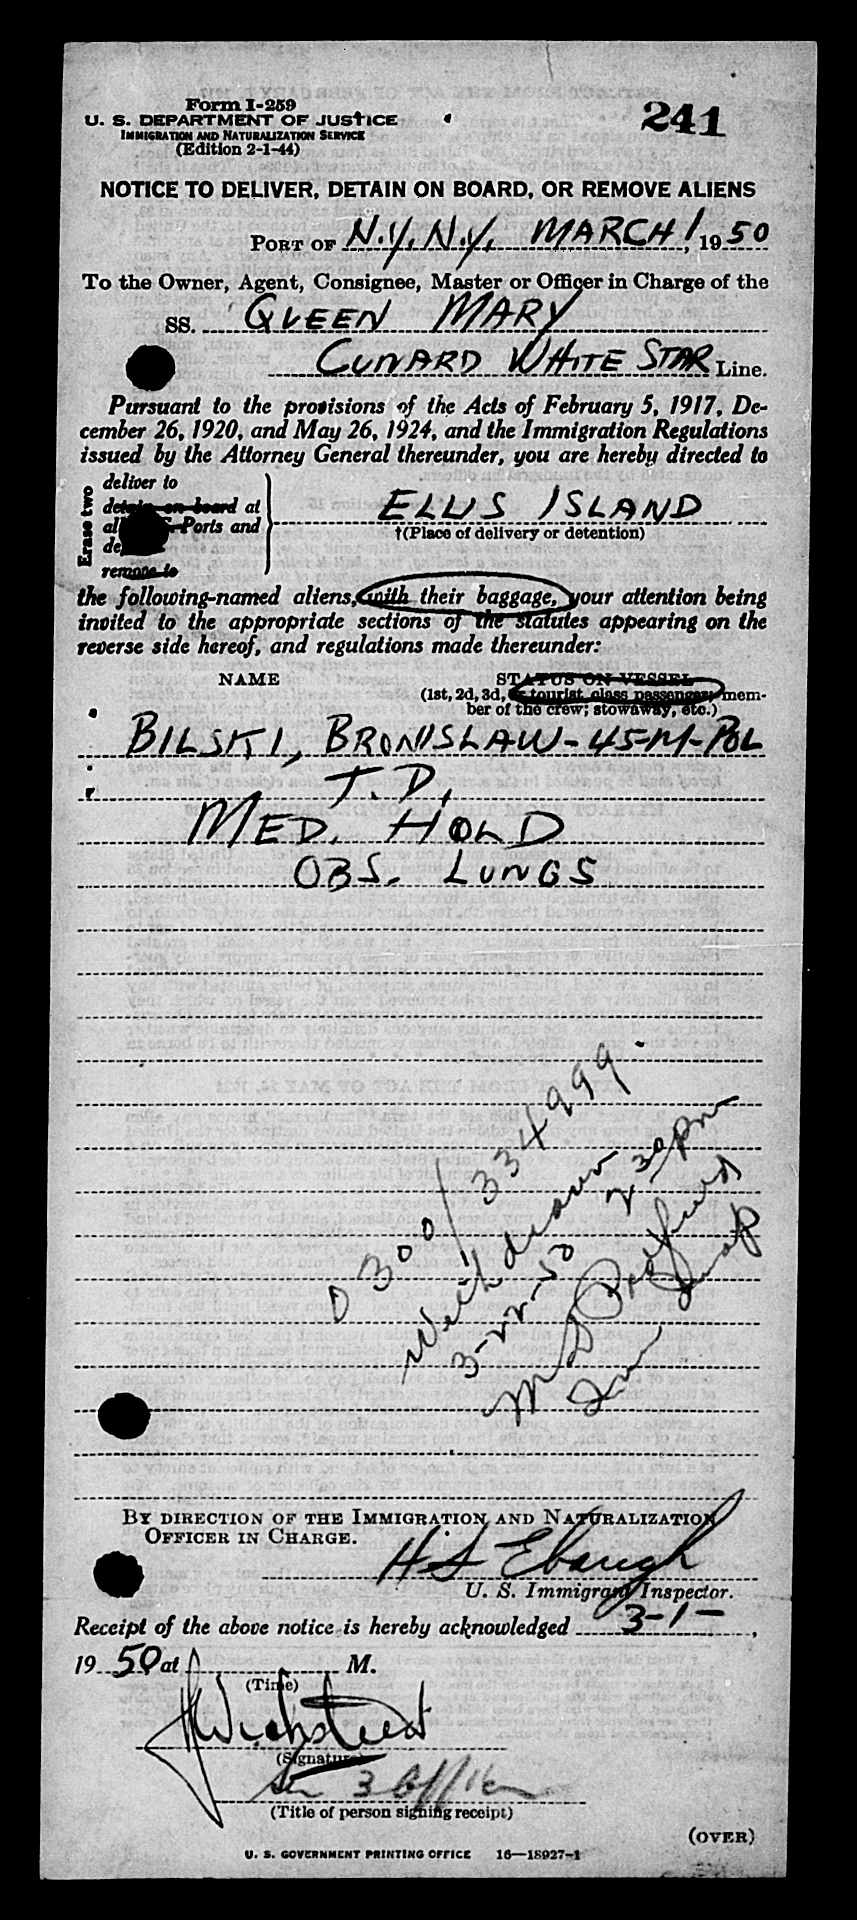 Form I-259
U. S. DEPARTMENT OF JUSTICE
IMMIGRATION AND NATURALIZATION SERVICE
(Edition 2-1-44)
241
NOTICE TO DELIVER, DETAIN ON BOARD, OR REMOVE ALIENS
PORT OF N.Y. N.Y. MARCH 1, 1950
To the Owner, Agent, Consignee, Master or Officer in Charge of the
SS. QUEEN MARY
CUNARD WHITE STAR Line.
Pursuant to the provisions of the Acts of February 5, 1917, De-
cember 26, 1920, and May 26, 1924, and the Immigration Regulations
issued by the Attorney General thereunder, you are hereby directed to
Erase two
deliver to
detain on board at
Ports and
remove to
ELLIS ISLAND
†(Place of delivery or detention)
the following-named aliens, with their baggage, your attention being
invited to the appropriate sections of the statutes appearing on the
reverse side hereof, and regulations made thereunder:
NAME
STATUS ON VESSEL
(1st, 2d, 3d, or tourist class passenger; mem-
ber of the crew; stowaway, etc.)
BILSKI, BRONISLAW-45-M-POL
T.D.
MED. HOLD
OBS. LUNGS
0300/334999
Withdrawn
3-22-50 2 30 pm
M S
Imm Insp
BY DIRECTION OF THE IMMIGRATION AND NATURALIZATION
OFFICER IN CHARGE.
H S Ebaugh
U. S. Immigrant Inspector.
Receipt of the above notice is hereby acknowledged 3-1-,
19 50 at M.
(Time)
(Signature)
3
(Title of person signing receipt)
(OVER)
U. S. GOVERNMENT PRINTING OFFICE 16—18927-1